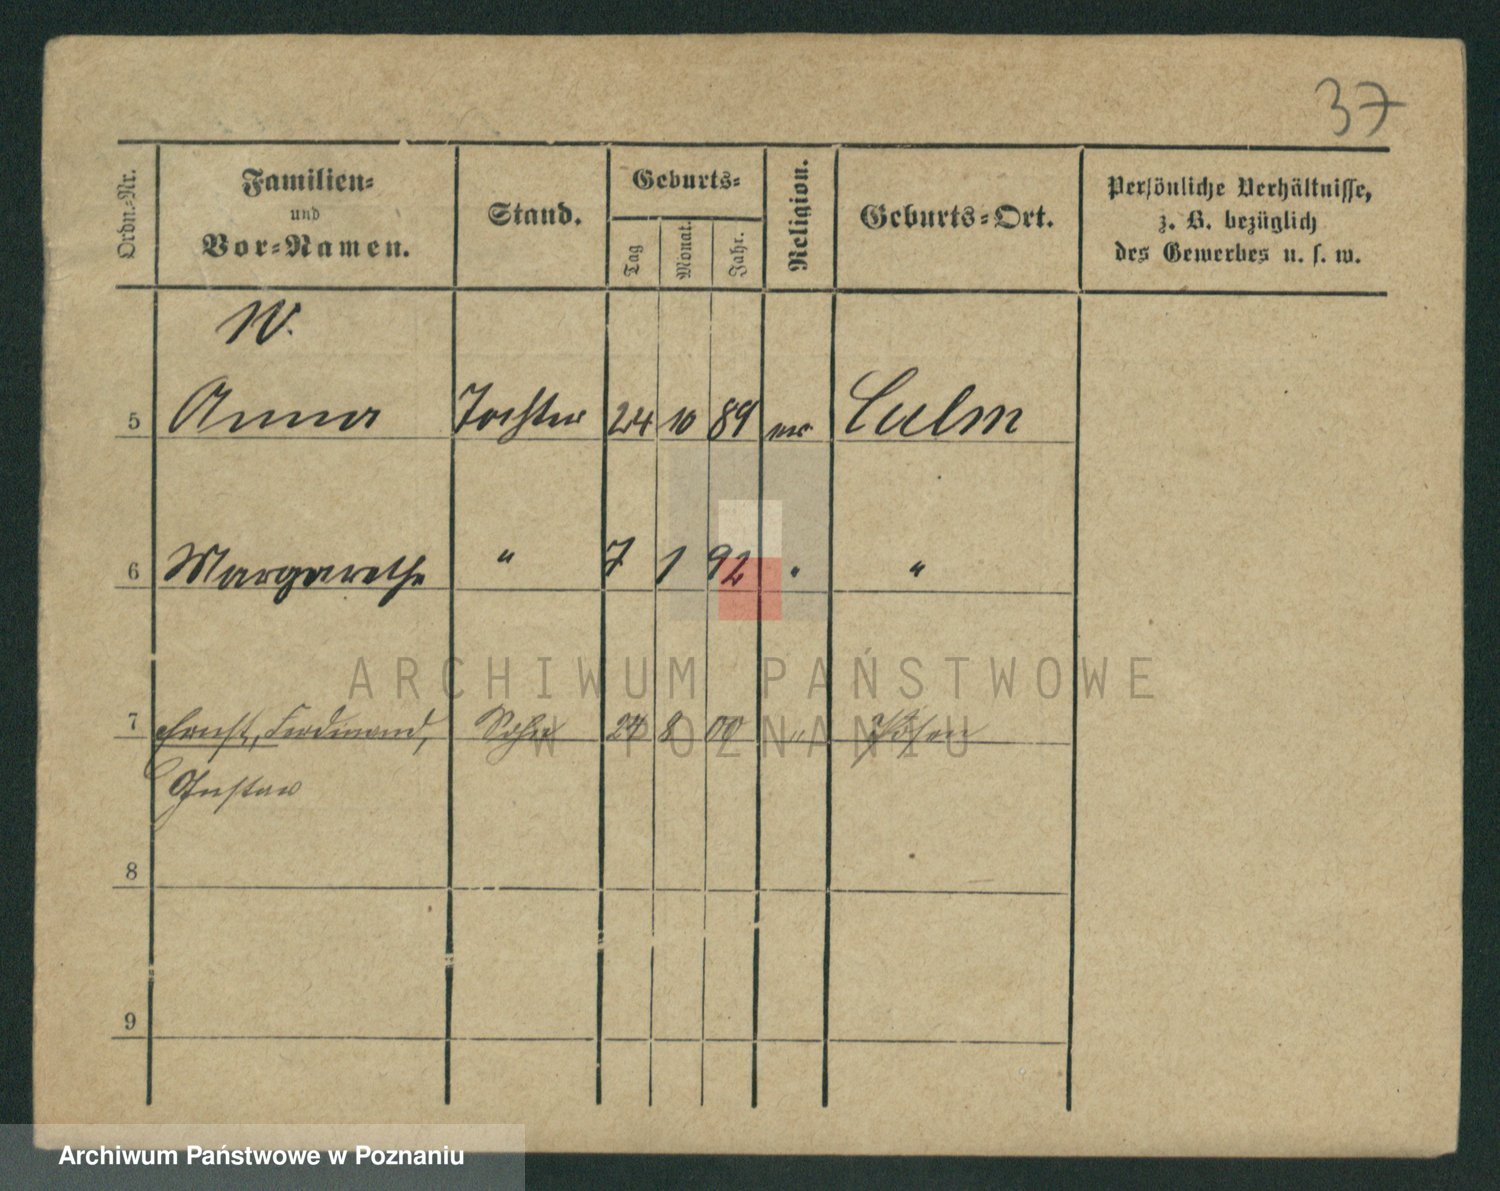 37
Ordn.-Nr. Familien- und Vor-Namen. Stand. Geburts- Tag Monat. Jahr. Religion. Geburts-Ort. Persönliche Verhältnisse, z. B. bezüglich des Gewerbes u. s. w.
W.
5 Anna Tochter 24 10 89 ev Culm
6 Margarethe " 7 1 92 " "
7 Ernst, Ferdinand, Sohn 24 8 00 " Posen
Gustav
8
9
ARCHIWUM PAŃSTWOWE
W POZNANIU
Archiwum Państwowe w Poznaniu